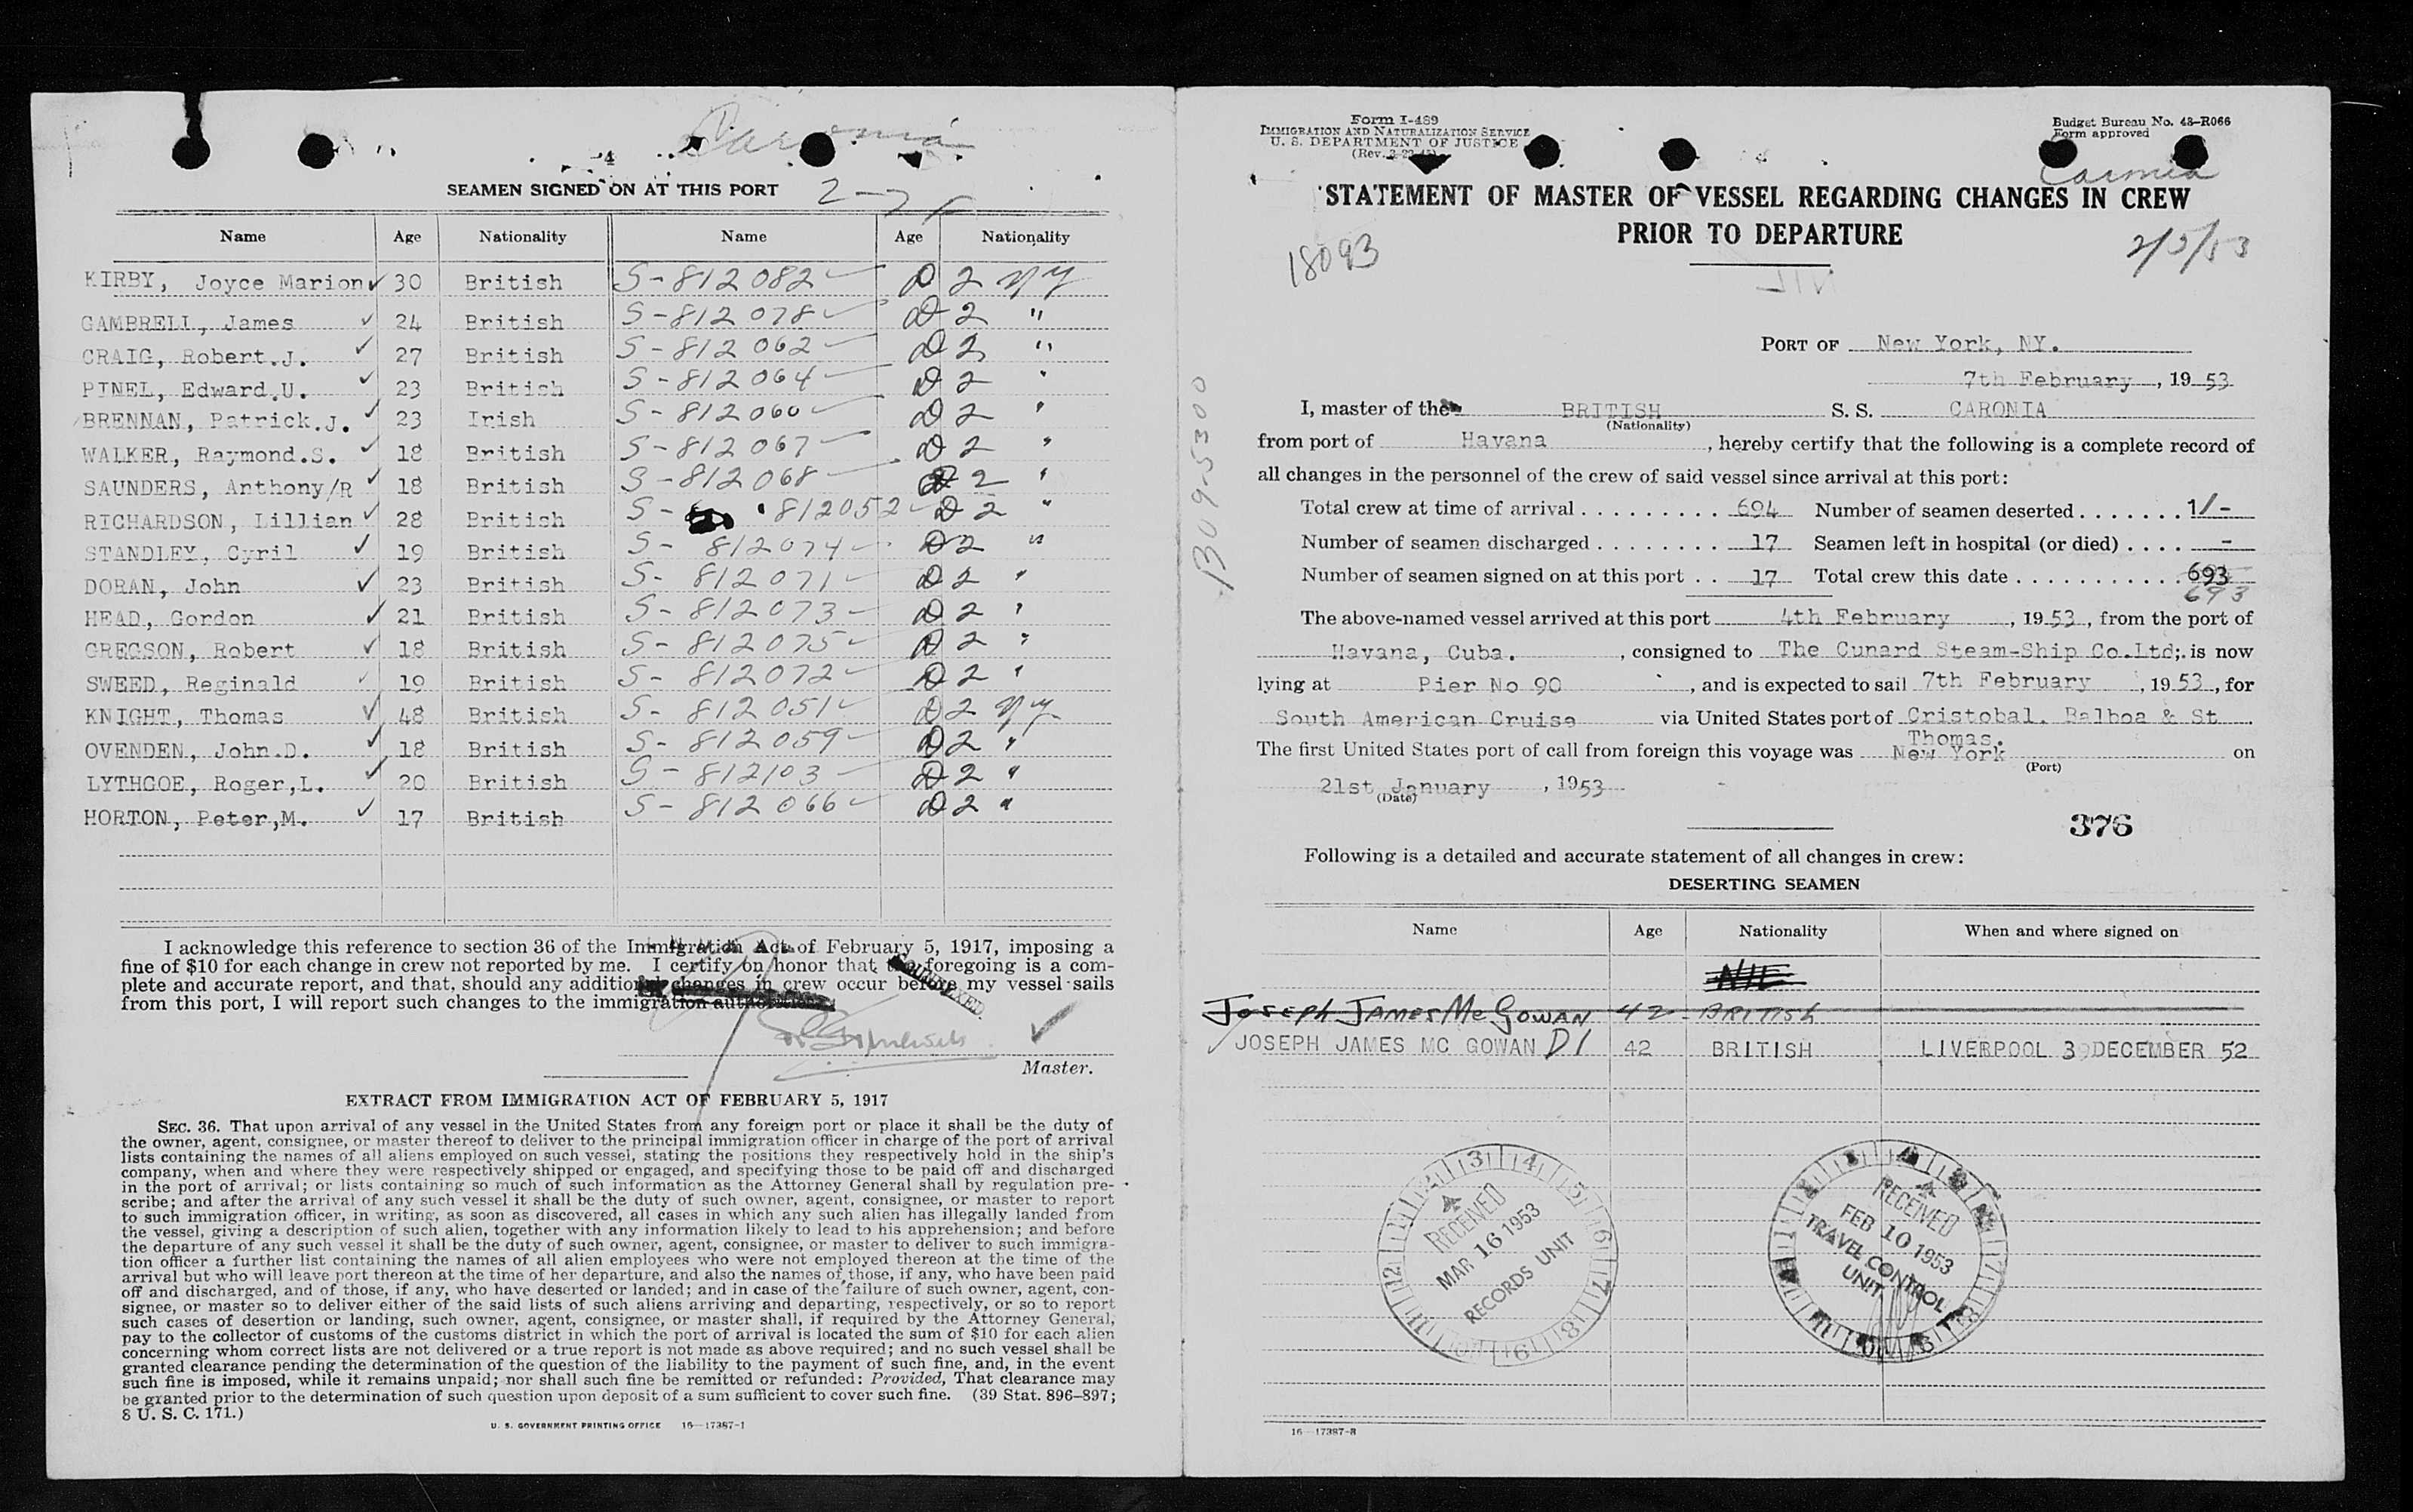 Caronia
4
SEAMEN SIGNED ON AT THIS PORT
2-7
Name Age Nationality Name Age Nationality
KIRBY, Joyce Marion ✓ 30 British S-812082 D 2 NY
GAMBRELL, James ✓ 24 British S-812078 D 2 "
CRAIG, Robert.J. ✓ 27 British S-812062 D 2 "
PINEL, Edward.U. ✓ 23 British S-812064 D 2 "
BRENNAN, Patrick.J. ✓ 23 Irish S-812060 D 2 "
WALKER, Raymond.S. ✓ 18 British S-812067 D 2 "
SAUNDERS, Anthony/R ✓ 18 British S-812068 D 2 "
RICHARDSON, Lillian ✓ 28 British S- 812052 D 2 "
STANDLEY, Cyril ✓ 19 British S- 812074 D 2 "
DORAN, John ✓ 23 British S- 812071 D 2 "
HEAD, Gordon ✓ 21 British S- 812073 D 2 "
GREGSON, Robert ✓ 18 British S- 812075 D 2 "
SWEED, Reginald ✓ 19 British S- 812072 D 2 "
KNIGHT, Thomas ✓ 48 British S- 812051 D 2 NY
OVENDEN, John.D. ✓ 18 British S- 812059 D 2 "
LYTHGOE, Roger,L. ✓ 20 British S- 812103 D 2 "
HORTON, Peter,M. ✓ 17 British S- 812066 D 2 "
I acknowledge this reference to section 36 of the Immigration Act of February 5, 1917, imposing a
fine of $10 for each change in crew not reported by me. I certify on honor that the foregoing is a com-
plete and accurate report, and that, should any additional changes in crew occur before my vessel sails
from this port, I will report such changes to the immigration authorities.
✓
Master.
EXTRACT FROM IMMIGRATION ACT OF FEBRUARY 5, 1917
SEC. 36. That upon arrival of any vessel in the United States from any foreign port or place it shall be the duty of
the owner, agent, consignee, or master thereof to deliver to the principal immigration officer in charge of the port of arrival
lists containing the names of all aliens employed on such vessel, stating the positions they respectively hold in the ship's
company, when and where they were respectively shipped or engaged, and specifying those to be paid off and discharged
in the port of arrival; or lists containing so much of such information as the Attorney General shall by regulation pre-
scribe; and after the arrival of any such vessel it shall be the duty of such owner, agent, consignee, or master to report
to such immigration officer, in writing, as soon as discovered, all cases in which any such alien has illegally landed from
the vessel, giving a description of such alien, together with any information likely to lead to his apprehension; and before
the departure of any such vessel it shall be the duty of such owner, agent, consignee, or master to deliver to such immigra-
tion officer a further list containing the names of all alien employees who were not employed thereon at the time of the
arrival but who will leave port thereon at the time of her departure, and also the names of those, if any, who have been paid
off and discharged, and of those, if any, who have deserted or landed; and in case of the failure of such owner, agent, con-
signee, or master so to deliver either of the said lists of such aliens arriving and departing, respectively, or so to report
such cases of desertion or landing, such owner, agent, consignee, or master shall, if required by the Attorney General,
pay to the collector of customs of the customs district in which the port of arrival is located the sum of $10 for each alien
concerning whom correct lists are not delivered or a true report is not made as above required; and no such vessel shall be
granted clearance pending the determination of the question of the liability to the payment of such fine, and, in the event
such fine is imposed, while it remains unpaid; nor shall such fine be remitted or refunded: Provided, That clearance may
be granted prior to the determination of such question upon deposit of a sum sufficient to cover such fine. (39 Stat. 896-897;
8 U. S. C. 171.)
U. S. GOVERNMENT PRINTING OFFICE 16—17387-1
Form I-489
IMMIGRATION AND NATURALIZATION SERVICE
U. S. DEPARTMENT OF JUSTICE
Budget Bureau No. 43-R066
Form approved
Caronia
STATEMENT OF MASTER OF VESSEL REGARDING CHANGES IN CREW
PRIOR TO DEPARTURE
18093
2/5/53
1309-5300
PORT OF New York, NY.
7th February, 19 53
I, master of the BRITISH S. S. CARONIA
(Nationality)
from port of Havana, hereby certify that the following is a complete record of
all changes in the personnel of the crew of said vessel since arrival at this port:
Total crew at time of arrival . . . . . . . . . 694 Number of seamen deserted . . . . . . . 1/-
Number of seamen discharged . . . . . . . . 17 Seamen left in hospital (or died) . . . . -
Number of seamen signed on at this port . . 17 Total crew this date . . . . . . . . . . . . 693
693
The above-named vessel arrived at this port 4th February, 19 53, from the port of
Havana, Cuba., consigned to The Cunard Steam-Ship Co.Ltd; is now
lying at Pier No 90, and is expected to sail 7th February, 19 53, for
South American Cruise via United States port of Cristobal. Balboa & St
Thomas.
The first United States port of call from foreign this voyage was New York on
(Port)
21st January, 1953
(Date)
376
Following is a detailed and accurate statement of all changes in crew:
DESERTING SEAMEN
Name Age Nationality When and where signed on
NIL
Joseph James McGowan 42 - BRITISH
JOSEPH JAMES MC GOWAN D1 42 BRITISH LIVERPOOL 3 DECEMBER 52
RECEIVED
MAR 16 1953
RECORDS UNIT
RECEIVED
FEB 10 1953
TRAVEL CONTROL
UNIT
16—17387-3